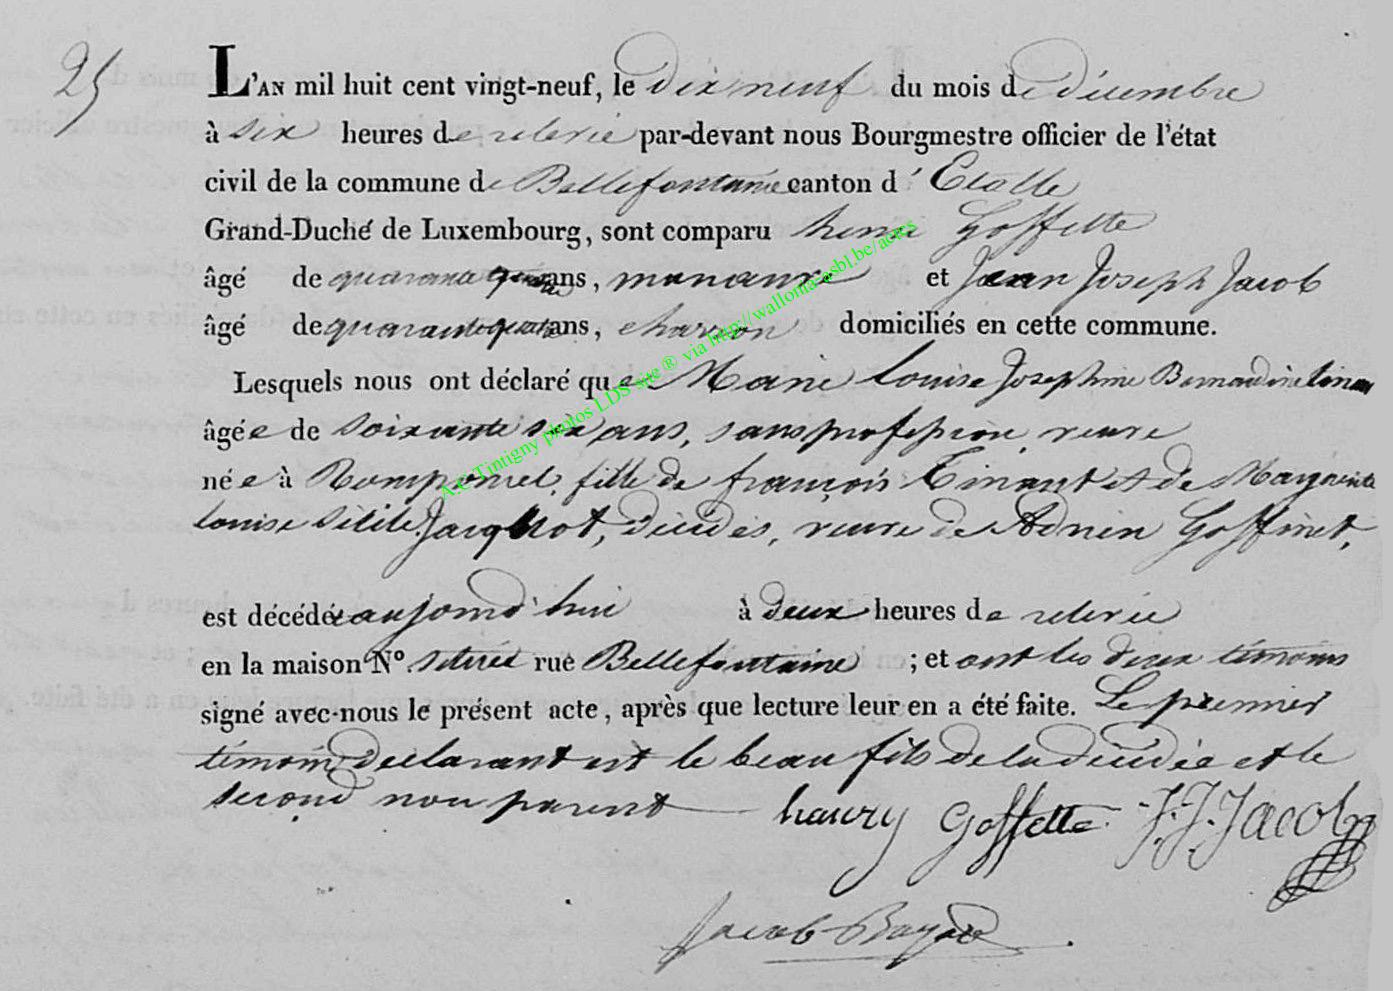 25
L'AN mil huit cent vingt-neuf, le dix neuf du mois de décembre
à six heures de relevée par-devant nous Bourgmestre officier de l'état
civil de la commune de Bellefontaine canton d' Etalle
Grand-Duché de Luxembourg, sont comparu henri Goffette
âgé de quarante ans, manœuvre et Jean Joseph Jacob
âgé de quarante quatre ans, charron domiciliés en cette commune.
Lesquels nous ont déclaré que Marie Louise Josephine Bernardine tinan
âgée de soixante six ans, sans profession, veuve
née à Romponcel, fille de françois Tinant et de Marguerite
louise Jacquot, décédés, veuve de Adrien Goffinet,
est décédée aujourd'hui à deux heures de relevée
en la maison N° rue Bellefontaine ; et ont les deux témoins
signé avec nous le présent acte, après que lecture leur en a été faite. Le premier
témoin déclarant est le beau fils de la décédée et le
second non parent henry Goffette J. J. Jacob
Jacob Bayard
A.C Tintigny photos LDS site ® via http://wallonia-asbl.be/actes